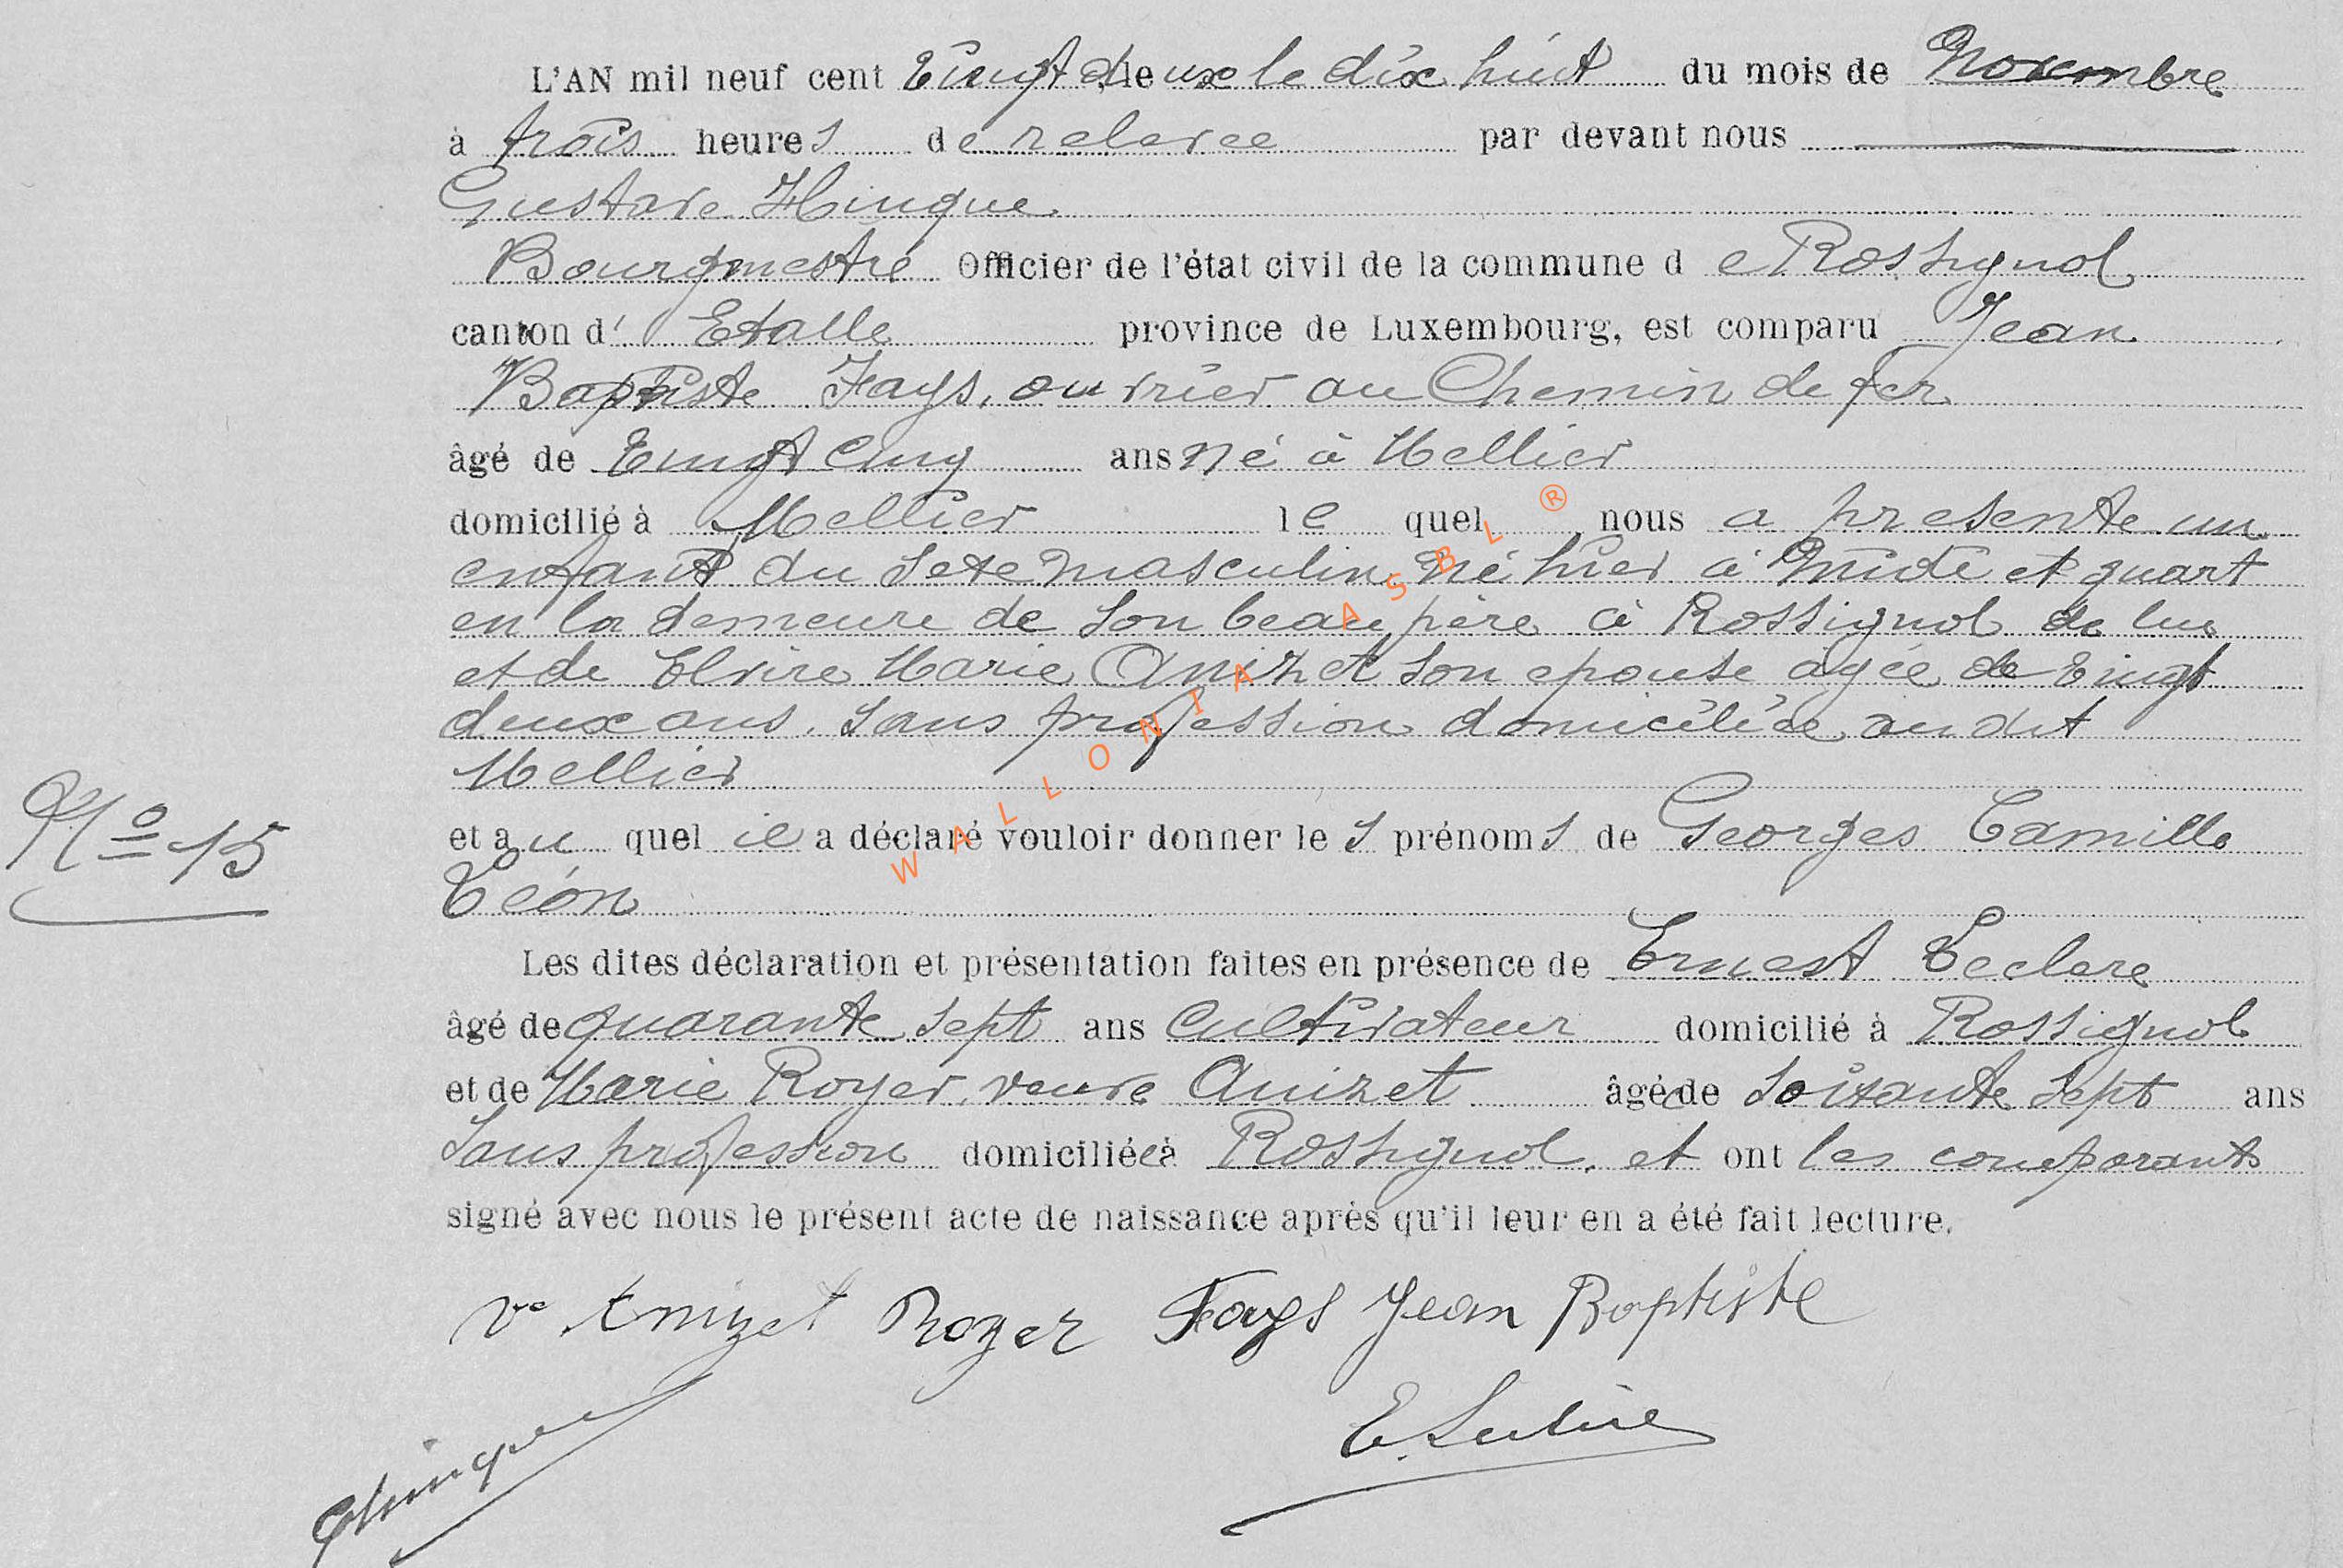 L'AN mil neuf cent Vingt deux le dix huit du mois de Novembre
à trois heures de relevee par devant nous
Gustave Hinque
Bourgmestre Officier de l'état civil de la commune de Rossignol
canton d' Etalle province de Luxembourg, est comparu Jean
Baptiste Fays, ouvrier au Chemin de fer
âgé de Vingt cinq ans né à Mellier
domicilié à Mellier lequel nous a presente un
enfant du sexe masculin né hier à midi et quart
en la demeure de son beau père à Rossignol de lui
et de Elvire Marie Anizet son epouse agée de Vingt
deux ans, sans profession domiciliée au dit
Mellier
Nº 15
et au quel il a déclaré vouloir donner les prénoms de Georges Camille
Léon
Les dites déclaration et présentation faites en présence de Ernest Leclere
âgé de quarante sept ans Cultivateur domicilié à Rossignol
et de Marie Royer, veuve Anizet âgée de Soixante sept ans
sans profession domiciliée à Rossignol, et ont les comparants
signé avec nous le présent acte de naissance après qu'il leur en a été fait lecture.
Ve Anizet Royer Fays Jean Baptiste
WALLONIA ASBL ®